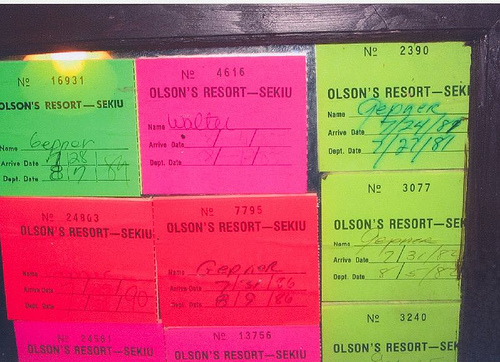 Nº 16931
OLSON'S RESORT—SEKIU
Name Gepner
Arrive Date 7/28/84
Dept. Date 8/7/84
Nº 4616
OLSON'S RESORT—SEKIU
Name Walter
Arrive Date
Dept. Date
Nº 2390
OLSON'S RESORT—SEK
Name Gepner
Arrive Date 7/24/81
Dept. Date 7/27/81
Nº 24803
OLSON'S RESORT—SEKIU
Name
Arrive Date
Dept. Date
Nº 7795
OLSON'S RESORT—SEKIU
Name Gepner
Arrive Date 7/31/86
Dept. Date 8/9/86
Nº 3077
OLSON'S RESORT—SEK
Name Gepner
Arrive Date 7/31/8
Dept. Date 8/5/8
Nº 24981
OLSON'S RESORT—SEKIU
Nº 13756
OLSON'S RESORT—SEKIU
Nº 3240
OLSON'S RESORT—SEK